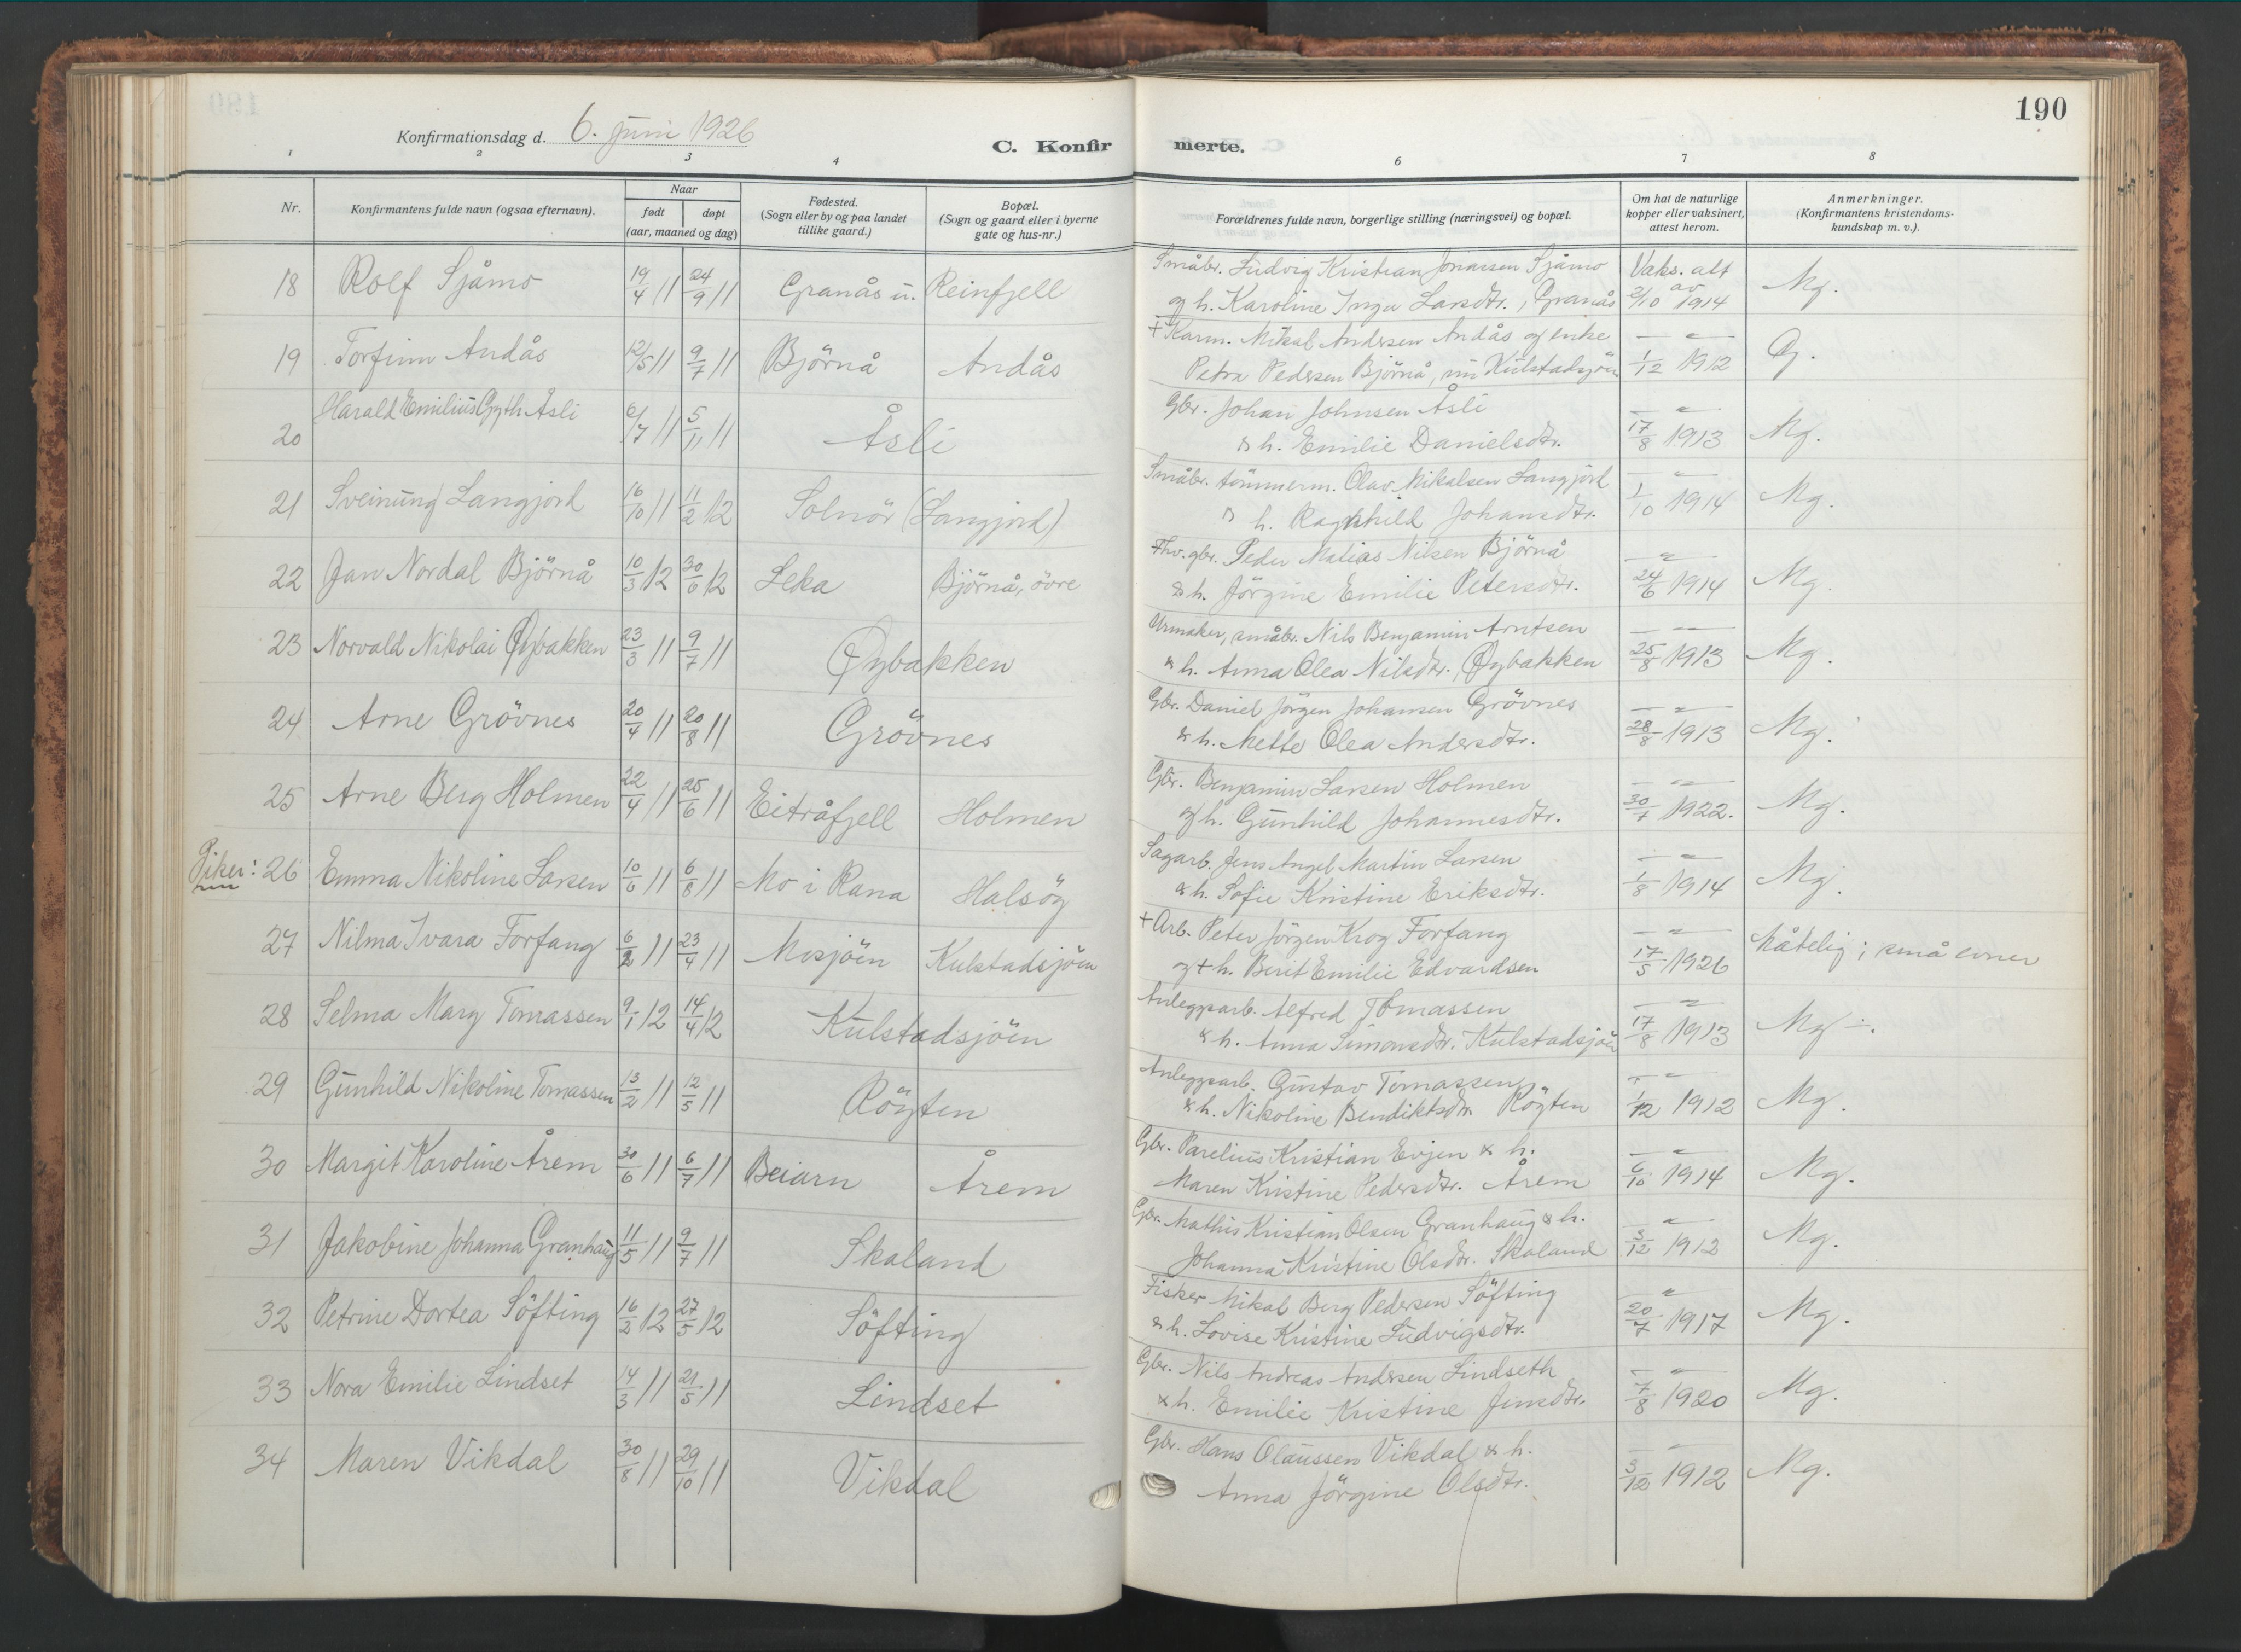 190
Konfirmationsdag d. 6. juni 1926
C. Konfirmerte.
1 2 3 4 6 7 8
Nr.
Konfirmantens fulde navn (ogsaa efternavn).
Naar
født døpt
(aar, maaned og dag)
Fødested.
(Sogn eller by og paa landet
tillike gaard.)
Bopæl.
(Sogn og gaard eller i byerne
gate og hus-nr.)
Forældrenes fulde navn, borgerlige stilling (næringsvei) og bopæl.
Om hat de naturlige
kopper eller vaksinert,
attest herom.
Anmerkninger.
(Konfirmantens kristendoms-
kundskap m. v.).
18 Rolf Sjåmo 19/4 11 24/9 11 Granås u. Reinfjell
Småbr. Ludvig Kristian Jonassen Sjåmo
og h. Karoline Inga Larsdtr., Granås
Vaks. att av 2/10 1914 Mg.
19 Torfinn Andås 12/5 11 9/7 11 Björnå Andås
+ Karm. Mikal Andersen Andås og enke
Petra Pedersen Björnå, nu Kulstadsjöen
— " — 1/12 1912 G.
20 Harald Emilius Gyth Åsli 6/7 11 5/11 11 Åsli
Gbr. Johan Johnsen Åsli
& h. Emilie Danielsdtr.
— " — 17/8 1913 Mg.
21 Sveinung Langjord 16/10 11 11/2 12 Solnör (Langjord)
Småbr. tömmerm. Olav Mikalsen Langjord
& h. Ragnhild Johansdtr.
— " — 1/10 1914 Mg.
22 Jan Nordal Björnå 10/3 12 30/6 12 Leka Björnå, övre
Fhv. gbr. Peder Matias Nilsen Björnå
& h. Jörgine Emilie Petersdtr.
— " — 24/6 1914 Mg.
23 Norvald Nikolai Øybakken 23/3 11 9/7 11 Øybakken
Urmaker, småbr. Nils Benjamin Arntsen
& h. Anna Olea Nilsdtr., Øybakken
— " — 25/8 1913 Mg.
24 Arne Grövnes 20/4 11 20/8 11 Grövnes
Gbr. Daniel Jörgen Johansen Grövnes
& h. Mette Olea Andersdtr.
— " — 28/8 1913 Mg.
25 Arne Berg Holmen 22/4 11 25/6 11 Eitråfjell Holmen
Gbr. Benjamin Larsen Holmen
og h. Gunhild Johannesdtr.
— " — 30/7 1922. Mg.
Piker: 26 Emma Nikoline Larsen 10/6 11 6/8 11 Mo i Rana Halsöy
Sagarb. Jens Angel Martin Larsen
& h. Sofie Kristine Eriksdtr.
— " — 1/8 1914 Mg.
27 Nilma Ivara Forfang 6/2 11 23/4 11 Mosjöen Kulstadsjöen
+ Arb. Peter Jörgen Krog Forfang
og + h. Berit Emilie Edvardsen
— " — 17/5 1926 Måtelig; små evner
28 Selma Mary Tomassen 9/1 12 14/4 12 Kulstadsjöen
Anleggsarb. Alfred Tomassen
& h. Anna Simonsdtr. Kulstadsjöen
— " — 17/8 1913 Mg ÷.
29 Gunhild Nikoline Tomassen 13/2 11 12/5 11 Röyten
Anleggsarb. Gustav Tomassen
& h. Nikoline Bendiktsdtr. Röyten
— " — 1/12 1912 Mg.
30 Margit Karoline Årem 30/6 11 6/7 11 Beiarn Årem
Gbr. Parelius Kristian Evjen & h.
Maren Kristine Pedersdtr. Årem
— " — 6/10 1914 Mg.
31 Jakobine Johanna Granhaug 11/5 11 9/7 11 Skaland
Gbr. Mathis Kristian Olsen Granhaug & h.
Johanna Kristine Olsdtr. Skaland
— " — 3/12 1912 Mg.
32 Petrine Dortea Söfting 16/2 12 27/5 12 Söfting
Fisker Mikal Berg Pedersen Söfting
& h. Lovise Kristine Ludvigsdtr.
— " — 20/7 1917 Mg.
33 Nora Emilie Lindset 14/3 11 21/5 11 Lindset
Gbr. Nils Andreas Andersen Lindseth
& h. Emilie Kristine Jensdtr.
— " — 7/8 1920 Mg.
34 Maren Vikdal 30/8 11 29/10 11 Vikdal
Gbr. Hans Olaussen Vikdal & h.
Anna Jörgine Olsdtr.
— " — 3/12 1912 Mg.